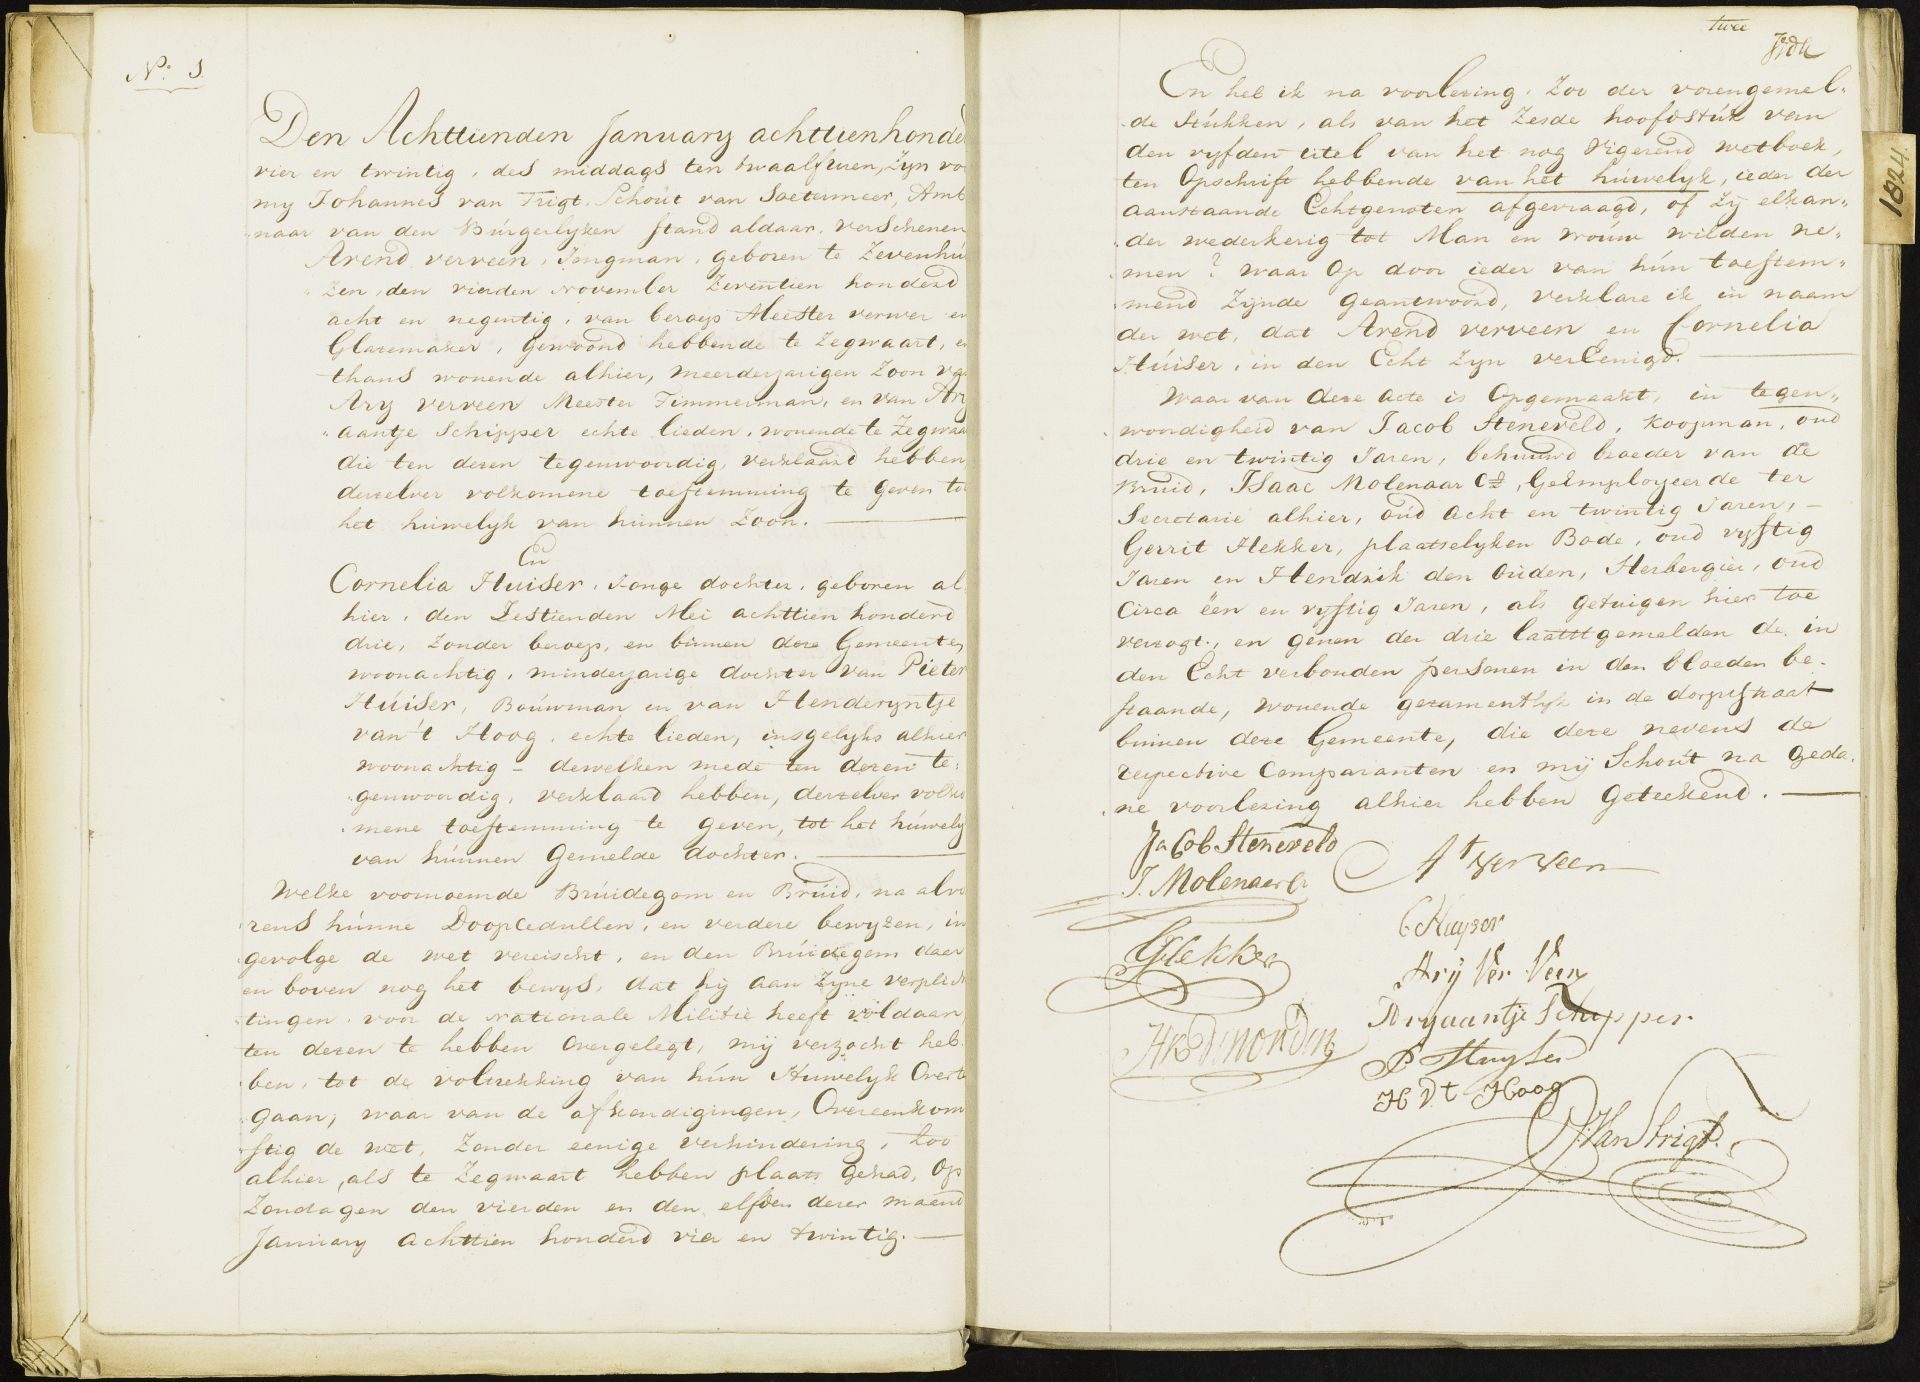 N.º 1
Den Achttienden January achttienhonde
vier en twintig, des middags ten twaalf uren, Zyn vo
my Johannes van Trigt, Schoút van Soetermeer, Amt
naar van den Búrgerlyken stand aldaar, verschenen
Arend verveen, Jongman, geboren te Zevenhúi
zen, den vierden November Zeventien honderd
acht en negentig, van beroep Meester verwer en
Glazemaker, gewoond hebbende te Zegwaart, en
thans wonende alhier, meerderjarigen Zoon va
Ary verveen Meester Timmerman, en van Ary
aantje Schipper echte lieden, wonende te Zegwaa
die ten dezen tegenwoordig, verklaard hebben
derzelver volkomene toestemming te geven to
het huwelyk van hunnen Zoon.
En
Cornelia Huiser, Jonge dochter, geboren al
hier, den Zestienden Mei achttien honderd
drie, zonder beroep, en binnen deze Gemeente,
woonachtig, minderjarige dochter van Pieter
Húiser, Boúwman en van Henderyntje
van 't Hoog, echte lieden, insgelyks alhier
woonachtig – dewelken mede ten dezen te„
genwoordig, verklaard hebben, derzelver volko
mene toestemming te geven, tot het húwely
van húnnen gemelde dochter.
Welke voornoemde Brúidegom en Brúid, na alvo
rens húnne Doopcedullen, en verdere bewyzen, in
gevolge de wet vereischt, en den Brúidegom daer
en boven nog het bewys, dat hy aan Zyne verplich
tingen voor de Nationale Militie heeft voldaan
ten dezen te hebben overgelegt, mij verzocht heb
ben, tot de voltrekking van hún Huwelyk Over te
gaan, waar van de afkondigingen, Overeenkom
stig de wet, Zonder eenige verhindering, Zoo
alhier, als te Zegwaart hebben plaats gehad, Op
Zondagen den vierden en den elfden dezer maand
January achttien honderd vier en twintig.
twee
En heb ik na voorlezing, Zoo der vorengemel„
de Stúkken, als van het Zesde hoofdstúk van
den vyfden titel van het nog vigerend wetboek,
ten Opschrift hebbende van het húwelyk, ieder der
aanstaande Echtgenoten afgevraagd, of Zij elkan„
der wederkerig tot Man en vroúw wilden ne„
men? waar Op door ieder van hún toestem„
mend Zijnde geantwoord, verklare ik in naam
der wet, dat Arend verveen en Cornelia
Húiser, in den Echt Zyn verEenigd.
Waar van deze acte is Opgemaakt, in tegen„
woordigheid van Jacob Steneveld, Koopman, oud
drie en twintig Jaren, behuwd broeder van de
Bruid, Isaac Molenaar Cz, Geëmployeerde ter
Secretarie alhier, oúd Acht en twintig Jaren, –
Gerrit Hekker, plaatselyken Bode, oud vyftig
Jaren en Hendrik den Oúden, Herbergier, oud
Circa een en vyftig Jaren, als getuigen hier toe
verzogt, en genen der drie laatstgemelden de in
den Echt verbonden personen in den bloeden be„
staande, wonende gezamentlyk in de dorpstraat
binnen deze Gemeente, die deze nevens de
respective Comparanten en mij Schoút na geda„
ne voorlezing alhier hebben geteekend.
Jacob Steneveld
A t verveen
I. Molenaar Cz
C Huyser
GHekker
Arij Ver Veen
Aryaantje Schipper
P Huyser
H V t Hoog
JVan Trigt.
1824.